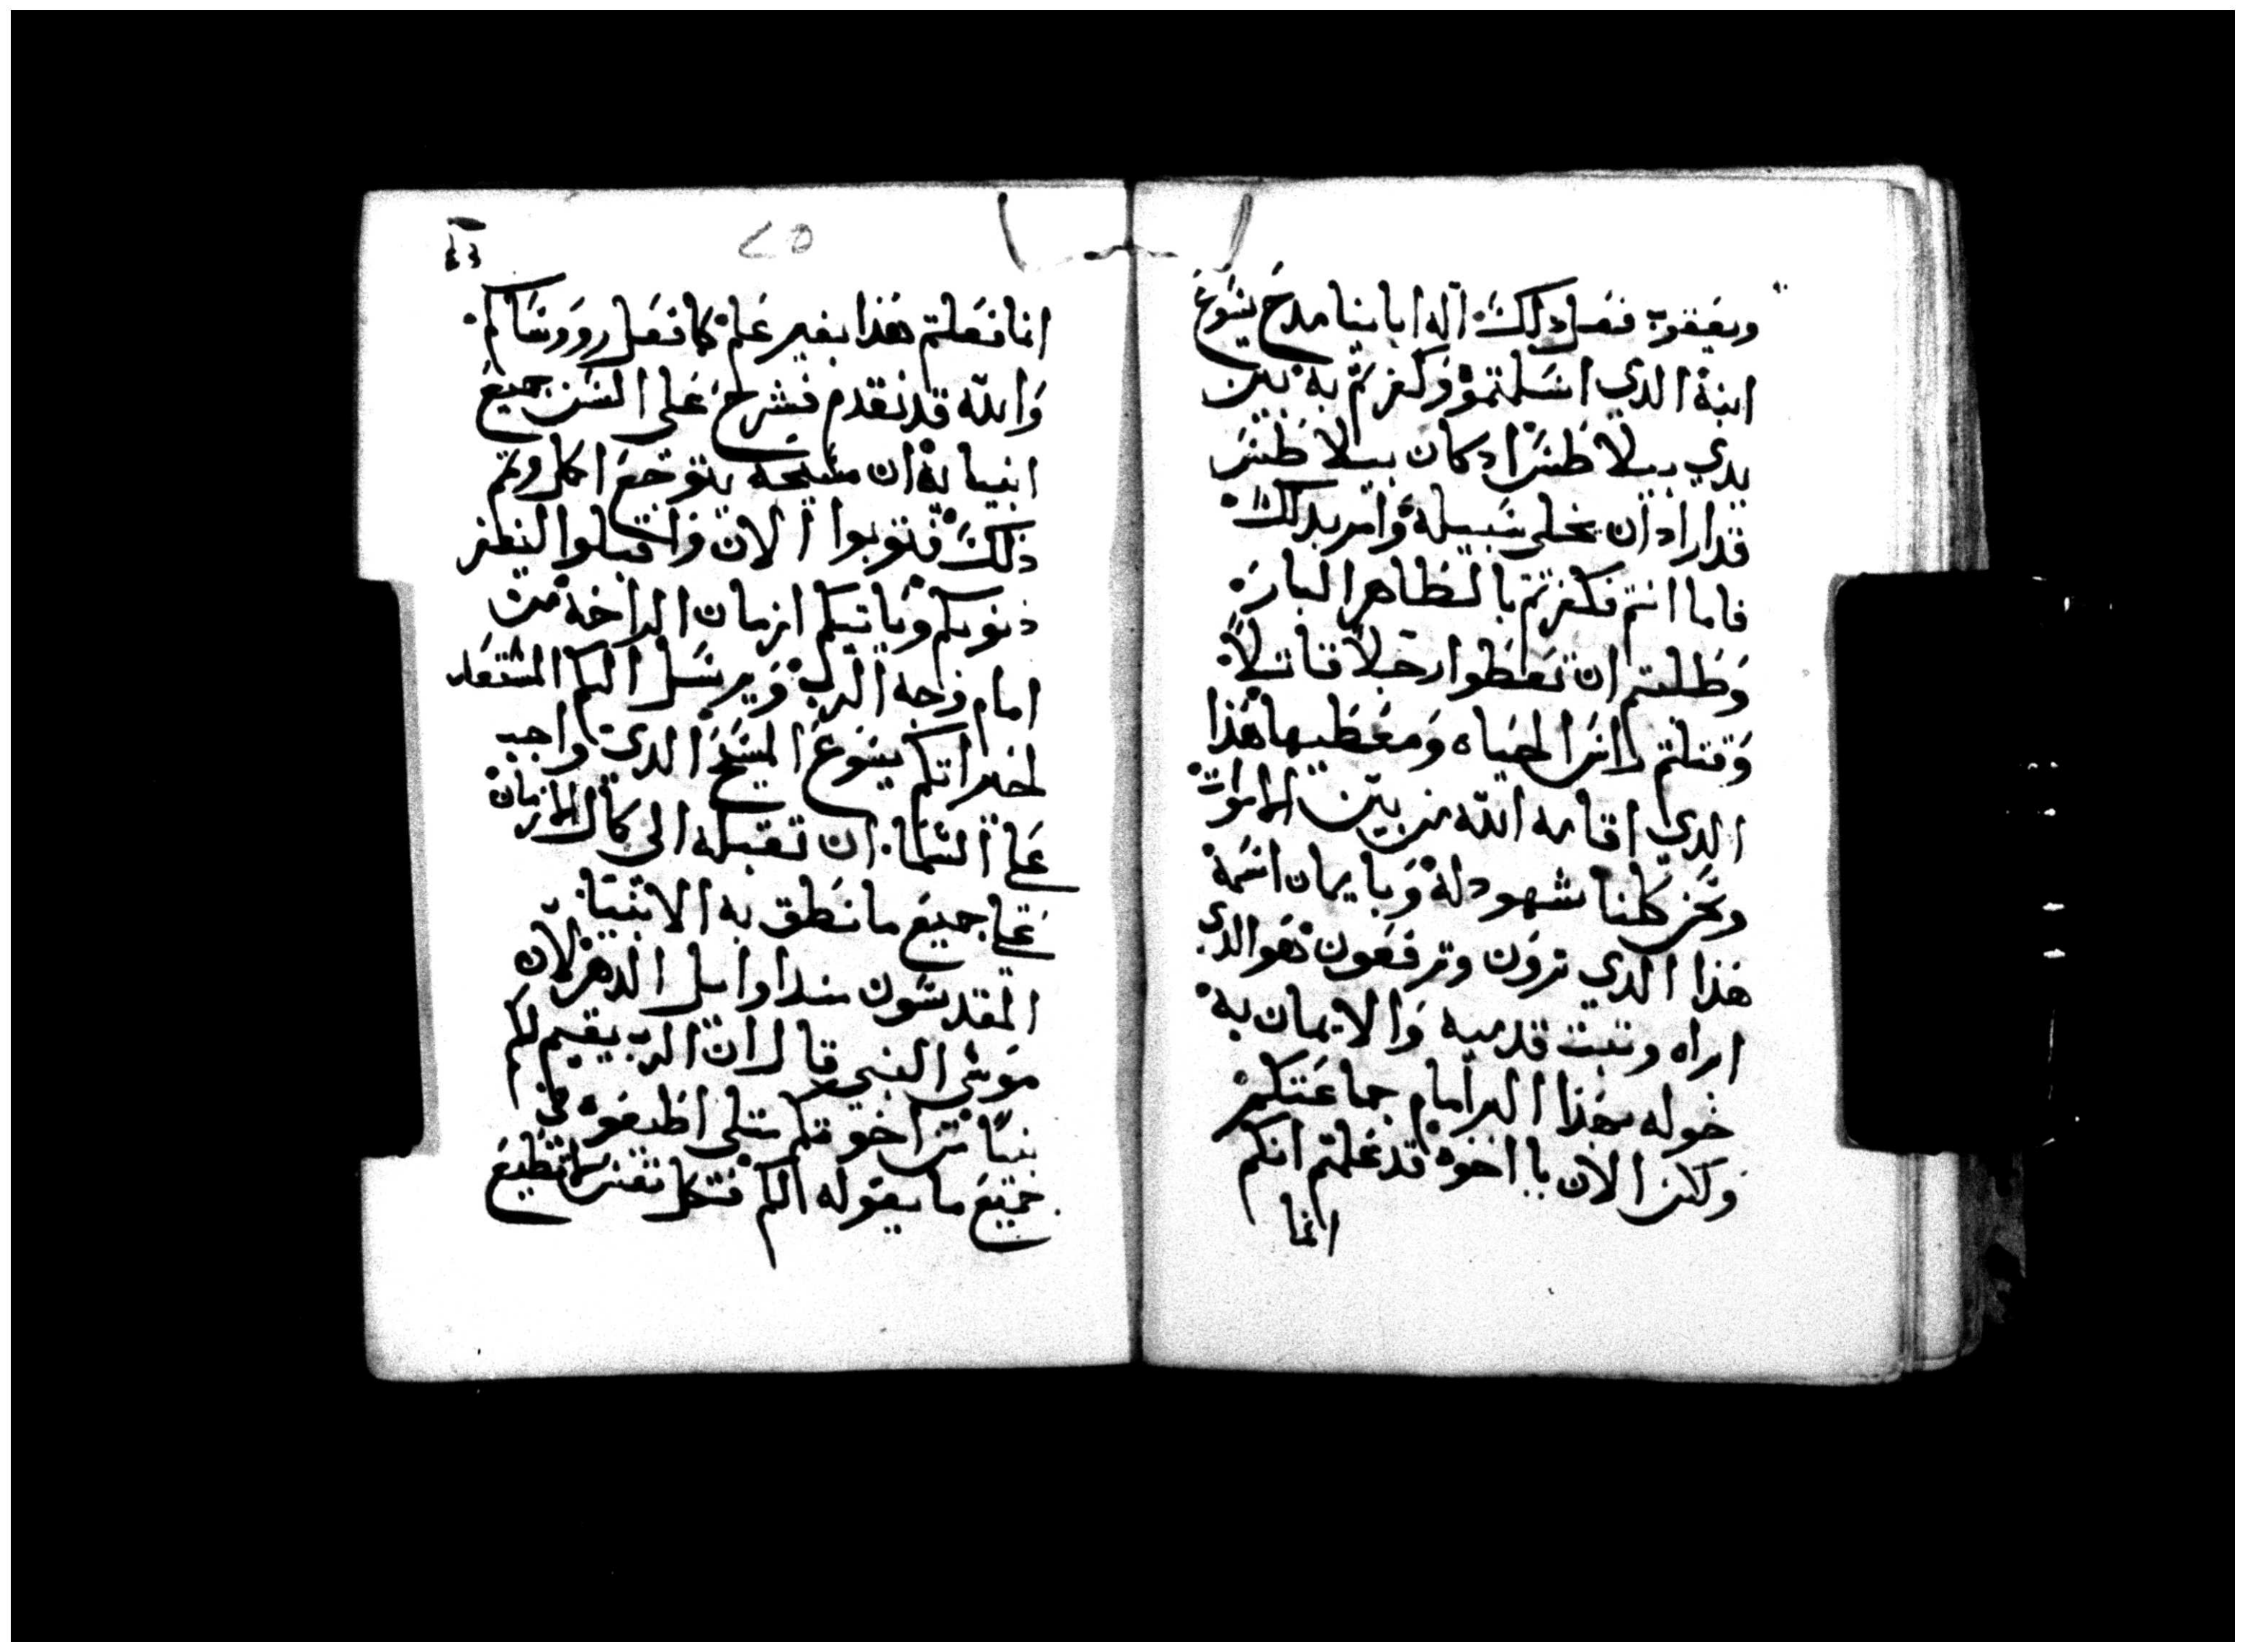 ويعقوب فعل ذلك اله ابا ينا مدح يسوع
ابنه الدي اسلمتموه وكفرتم به بين
يدي بيلاطس اد كان بيلاطس
قد اراد ان يخلي سبيله وامر بدلك
فاما انتم فكفرتم بالطاهر البار
وطلبتم ان تعطوا رجلا قاتلا
وقتلتم راس الحياه ومعطيها هذا
الدي اقامه الله من بين الاموات
ونحن كلنا شهود له وبايمان اسمه
هذا الدي ترون وترفعون هو الدي
ابراه وتبت قدميه والايمان به
خوله بهذا البر امام جماعتكم
ولكن الان يا اخوه قد علمتم انكم
انما
٢٥
انما فعلتم هذا بغير علم كما فعل رووساكم
والله قد تقدم فشرح على السن جميع
انبيايه ان مسيحه يتوجع اكل وتم
ذلك فتوبوا الان واقبلوا
دنوبكم وياتيكم ازمان الراحه من
امام وجه الرب ويرسل اليكم المستعد
يسوع المسيح الدي واجب
على السما ان تقبله الى كمال الازمان
على جميع ما نطق به الانبيا
المقدسون مند اوايل الدهر لان
موسى النبي قال ان الرب يقيم لكم
نبيا من اخوتكم متلي اطيعوه في
جميع ما يقوله لكم فتكل نفس لا تطيع